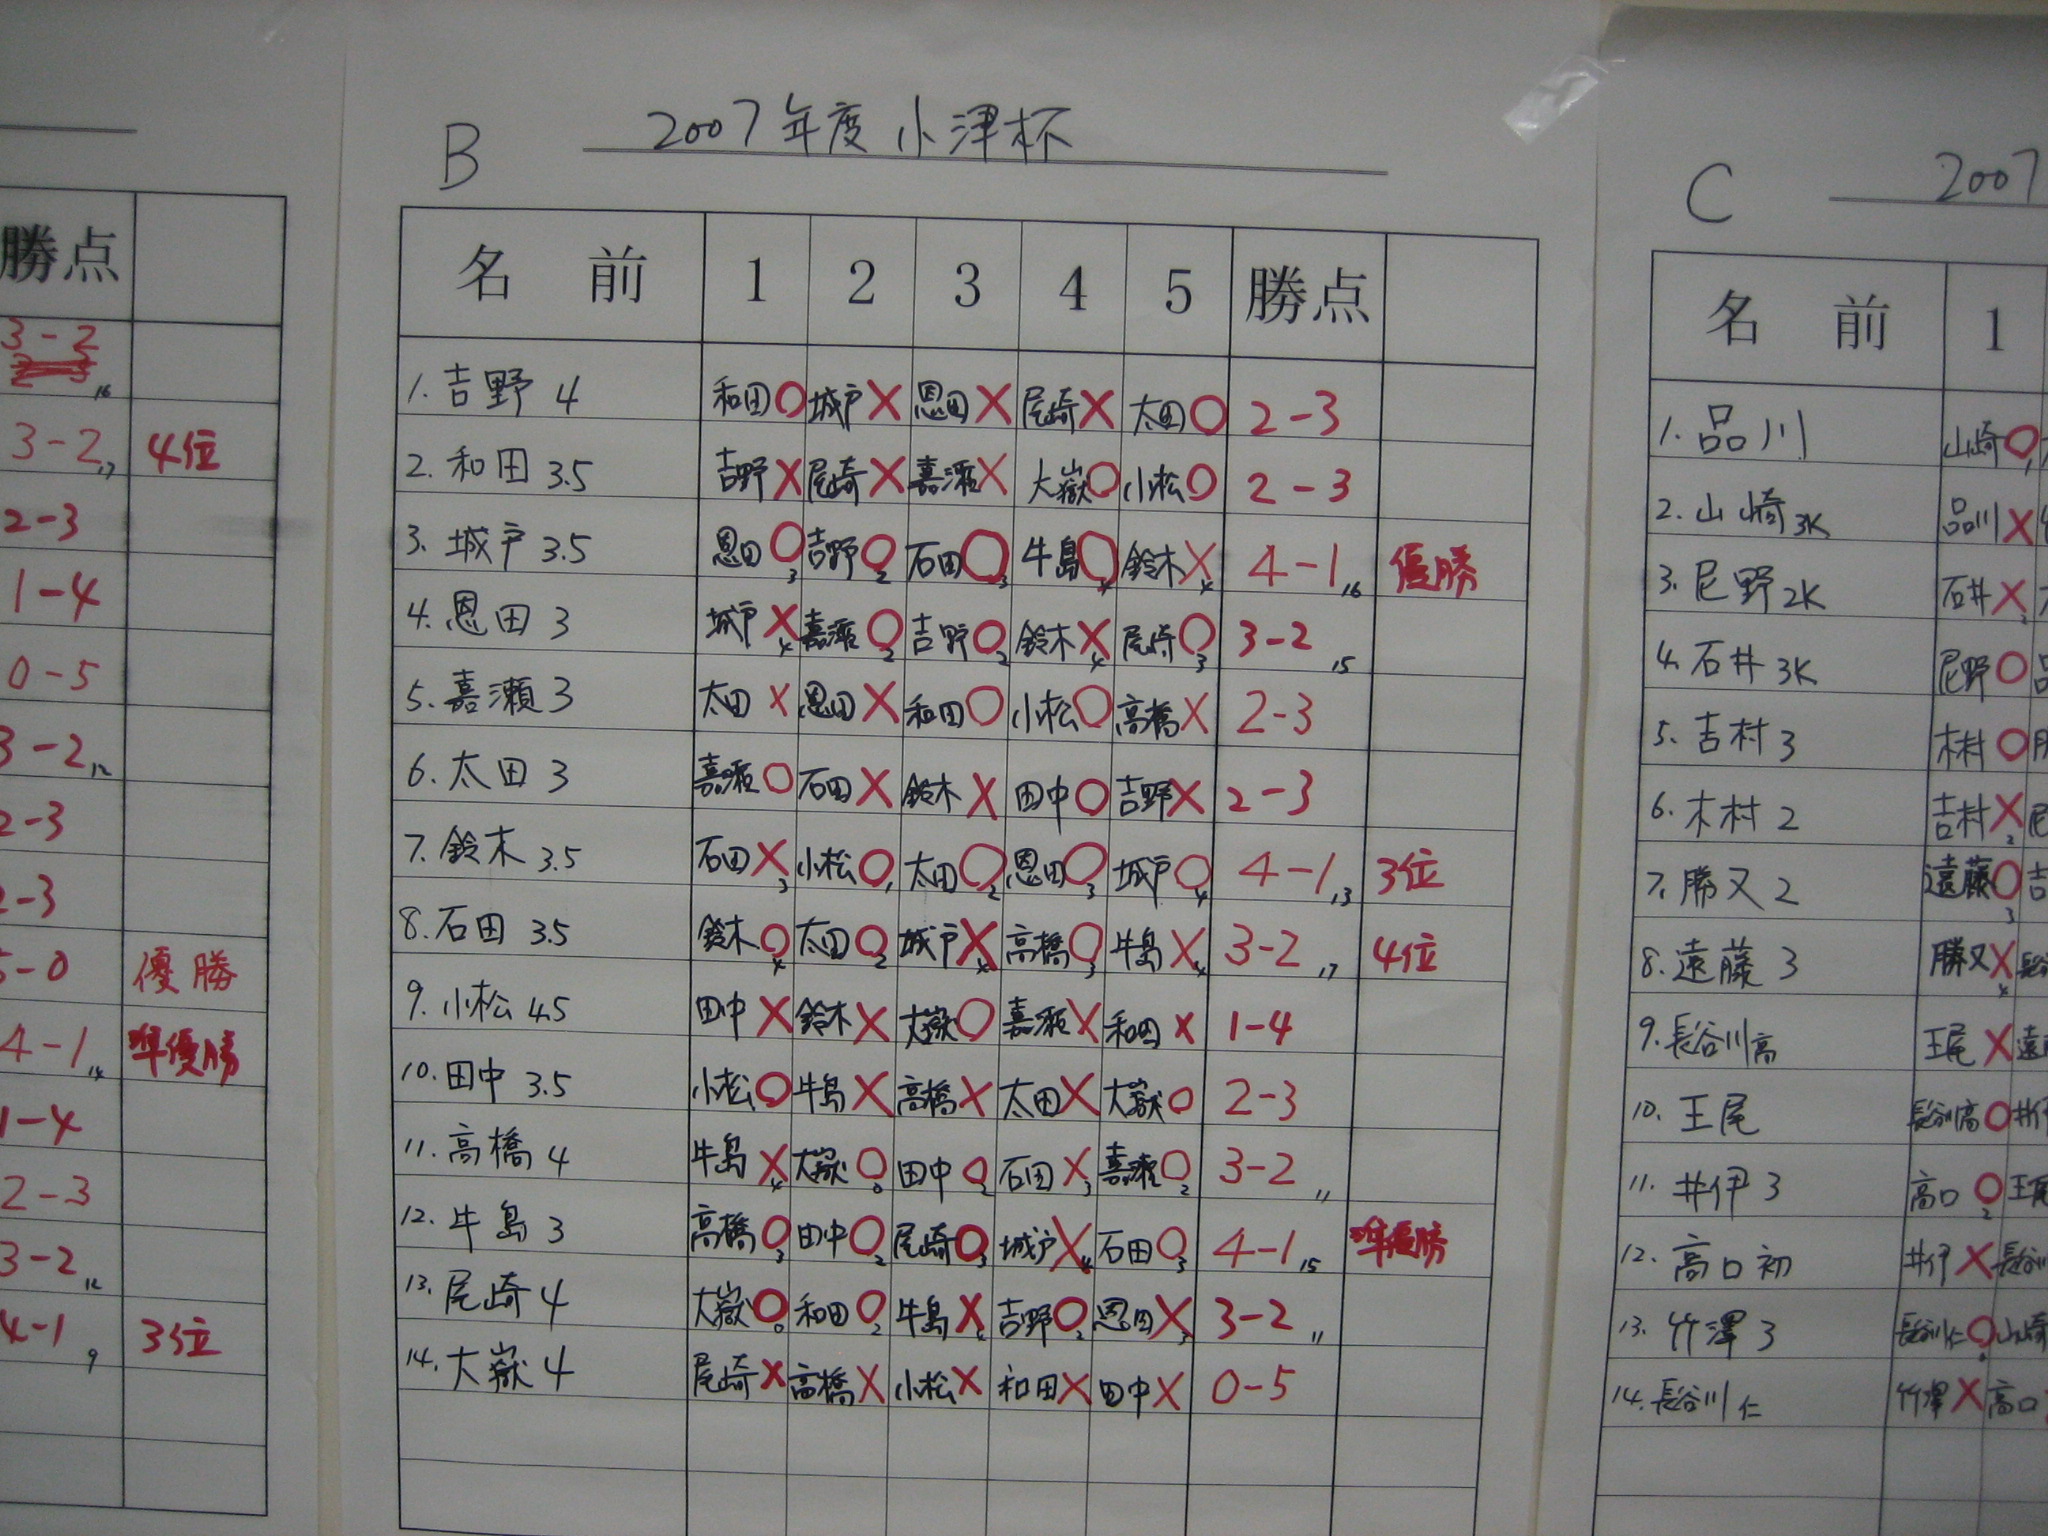 勝点
3-2 16
3-2 17 4位
2-3
1-4
0-5
3-2 12
2-3
2-3
5-0 優勝
4-1 14 準優勝
1-4
2-3
3-2 12
4-1 9 3位
B 2007年度 小津杯
名 前 1 2 3 4 5 勝点
1. 吉野 4 和田○ 城戸× 恩田× 尾崎× 太田○ 2-3
2. 和田 3.5 吉野× 尾崎× 嘉瀬× 大嶽○ 小松○ 2-3
3. 城戸 3.5 恩田○3 吉野○2 石田○3 牛島○4 鈴木×4 4-1 16 優勝
4. 恩田 3 城戸×4 嘉瀬○2 吉野○2 鈴木×4 尾崎○3 3-2 15
5. 嘉瀬 3 太田× 恩田× 和田○ 小松○ 高橋× 2-3
6. 太田 3 嘉瀬○ 石田× 鈴木× 田中○ 吉野× 2-3
7. 鈴木 3.5 石田×3 小松○1 太田○2 恩田○3 城戸○4 4-1 13 3位
8. 石田 3.5 鈴木○4 太田○2 城戸×4 高橋○3 牛島×4 3-2 17 4位
9. 小松 4.5 田中× 鈴木× 大嶽○ 嘉瀬× 和田× 1-4
10. 田中 3.5 小松○ 牛島× 高橋× 太田× 大嶽○ 2-3
11. 高橋 4 牛島×4 大嶽○0 田中○2 石田×3 嘉瀬○2 3-2 11
12. 牛島 3 高橋○3 田中○2 尾崎○3 城戸×4 石田○3 4-1 15 準優勝
13. 尾崎 4 大嶽○0 和田○2 牛島×4 吉野○2 恩田×3 3-2 11
14. 大嶽 4 尾崎× 高橋× 小松× 和田× 田中× 0-5
C 2007
名 前 1
1. 品川 山崎○
2. 山崎 3K 品川×
3. 尼野 2K 石井×
4. 石井 3K 尼野○
5. 吉村 3 木村○
6. 木村 2 吉村×2
7. 勝又 2 遠藤○3
8. 遠藤 3 勝又×4
9. 長谷川高 王尾×
10. 王尾 長谷川高○
11. 井伊 3 高口○2
12. 高口 初 井伊×
13. 竹澤 3 長谷川仁○
14. 長谷川仁 竹澤× 高口